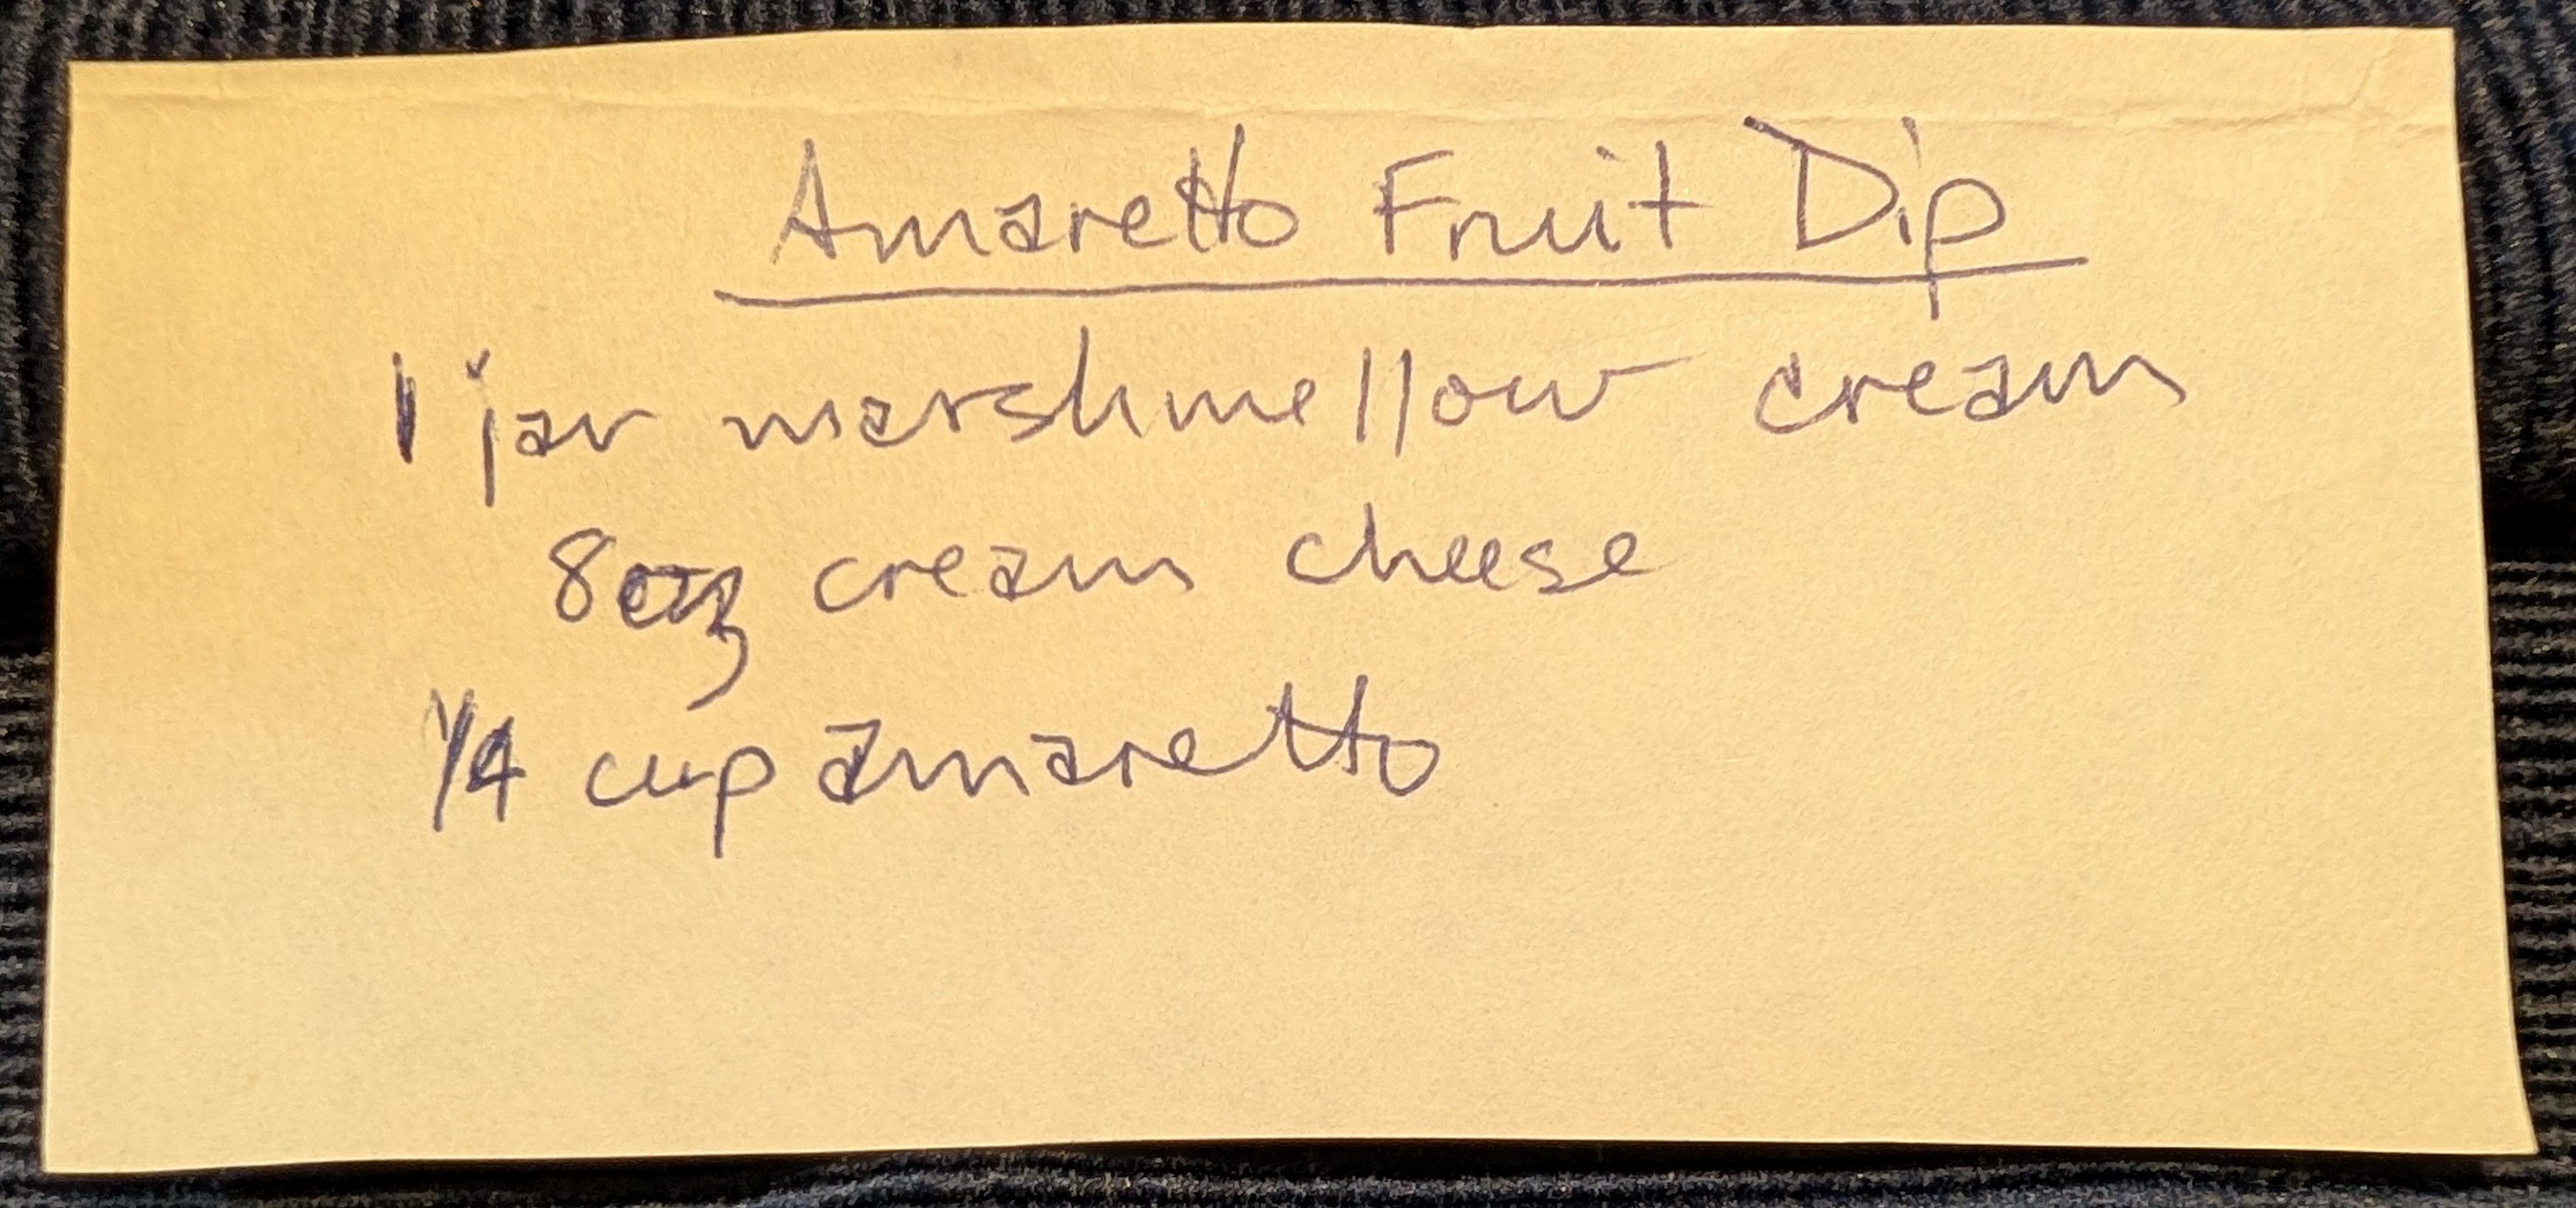 Amaretto Fruit Dip
1 jar marshmellow cream
8oz cream cheese
1/4 cup amaretto